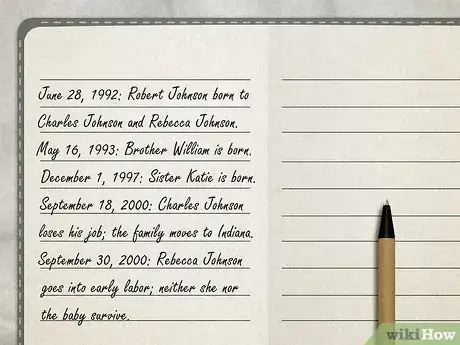 June 28, 1992: Robert Johnson born to
Charles Johnson and Rebecca Johnson.
May 16, 1993: Brother William is born.
December 1, 1997: Sister Katie is born.
September 18, 2000: Charles Johnson
loses his job; the family moves to Indiana.
September 30, 2000: Rebecca Johnson
goes into early labor; neither she nor
the baby survive.
wikiHow